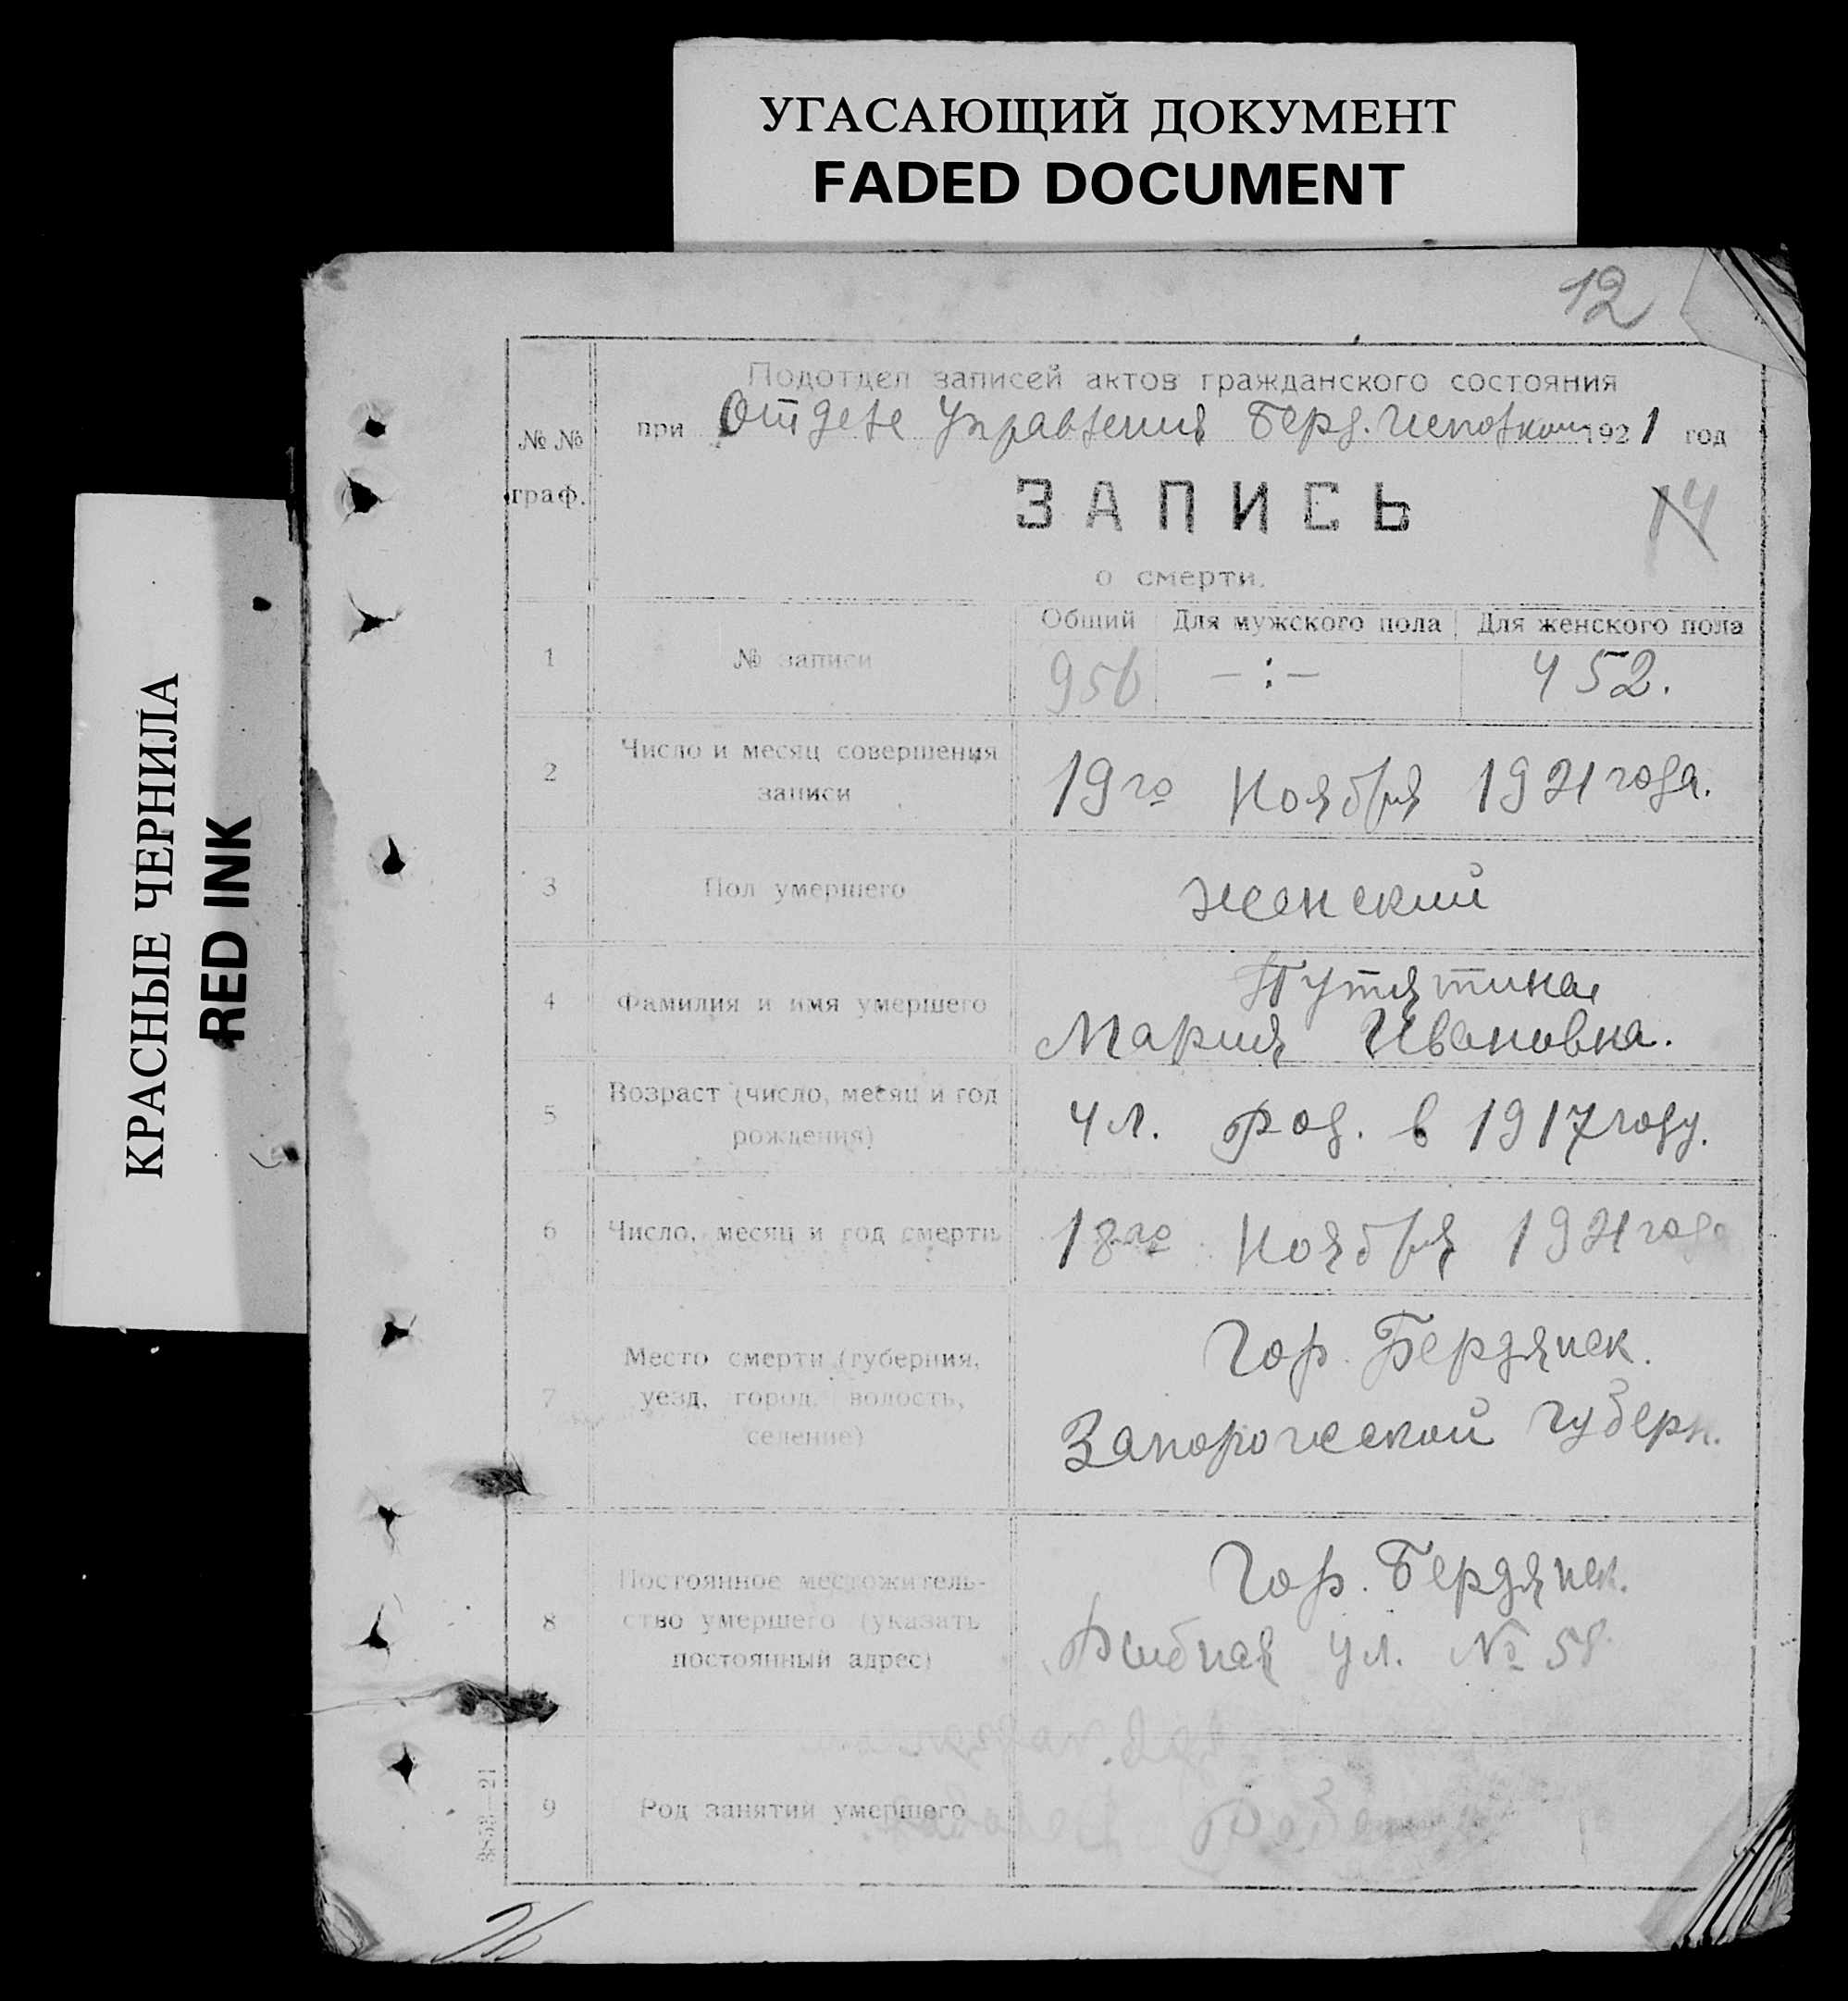 УГАСАЮЩИЙ ДОКУМЕНТ
FADED DOCUMENT
КРАСНЫЕ ЧЕРНИЛА
RED INK
12
Подотдел записей актов гражданского состояния
№ № граф.
при Отделе Управления Берд. Исполком 1921 год
ЗАПИСЬ
14
о смерти.
Общий Для мужского пола Для женского пола
1 № записи 956 -:- 452.
2 Число и месяц совершения
записи 19го Ноября 1921 года.
3 Пол умершего женский
4 Фамилия и имя умершего Путятина
Мария Ивановна.
5 Возраст (число, месяц и год
рождения) 4 л. род. в 1917 году.
6 Число, месяц и год смерти 18го Ноября 1921 года
7 Место смерти (губерния,
уезд, город, волость,
селение)
Гор. Бердянск.
Запорожской губерн.
8 Постоянное местожитель-
ство умершего (указать
постоянный адрес)
Гор. Бердянск.
Рыбная ул. № 58
9 Род занятий умершего
3858—21